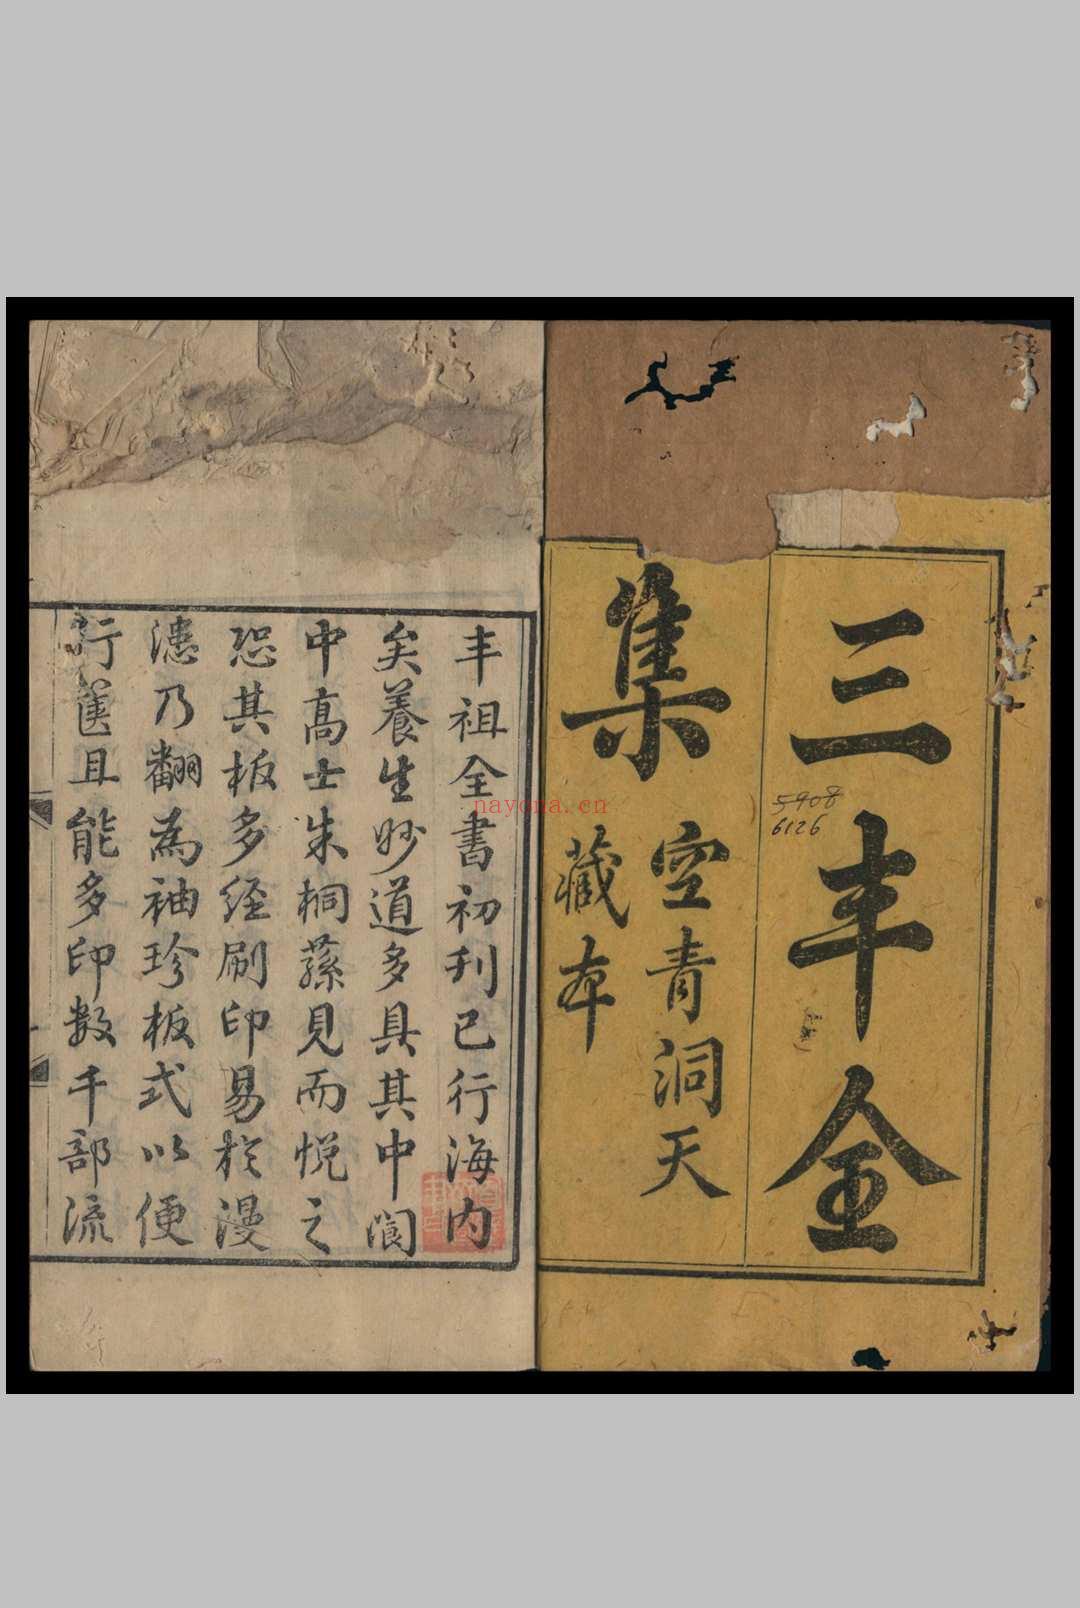 三丰全
集
空青洞天
藏本
5908
6126
丰祖全書初刊已行海内
矣養生妙道多具其中閬
中高士朱桐蓀見而悦之
恐其板多経刷印易於漫
漶乃翻為袖珍板式以便
行匧且能多印数千部流
nayona.cn